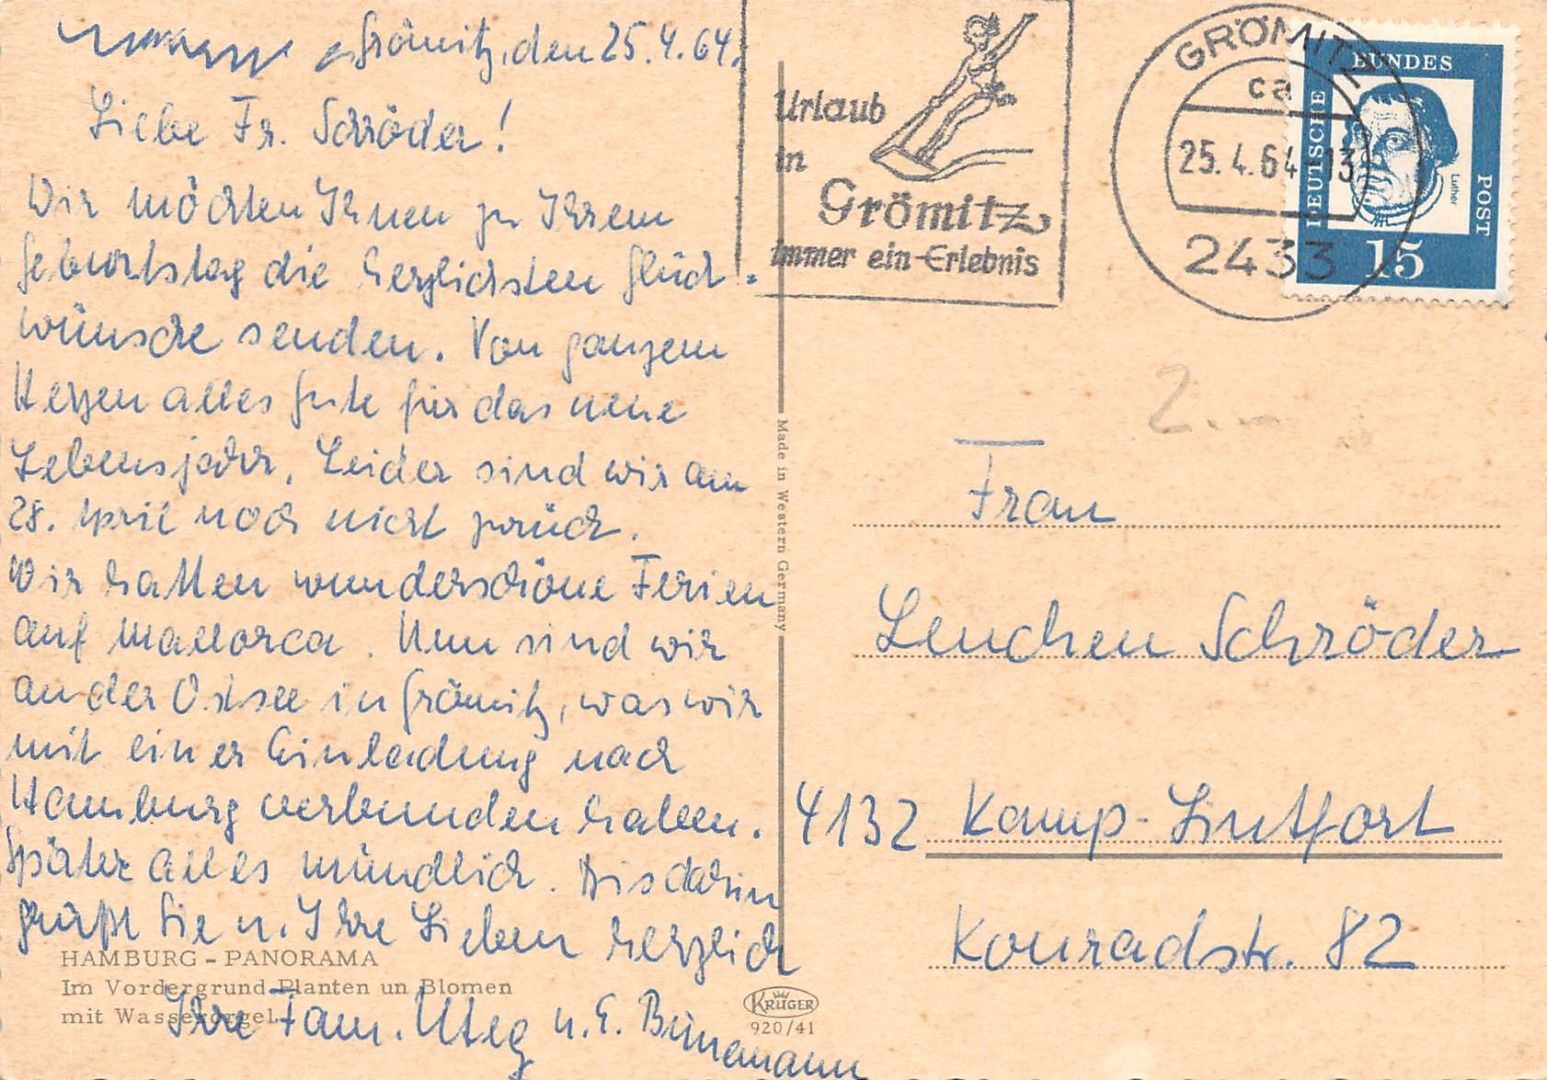 Grömitz, den 25.4.64.
Liebe Fr. Schröder!
Wir möchten Ihnen zu Ihrem
Geburtstag die herzlichsten Glück-
wünsche senden. Von ganzem
Herzen alles Gute für das neue
Lebensjahr. Leider sind wir am
28. April noch nicht zurück.
Wir hatten wunderschöne Ferien
auf Mallorca. Nun sind wir
an der Ostsee in Grömitz, was wir
mit einer Einladung nach
Hamburg verbunden haben.
Später alles mündlich. Bis dahin
grüßt Sie u. Ihre Lieben herzlich
Ihre Fam. u. E. Bünemann
HAMBURG - PANORAMA
Im Vordergrund Planten un Blomen
mit Wasserorgel
KRÜGER
920/41
Made in Western Germany
Urlaub
in
Grömitz
immer ein Erlebnis
GRÖMITZ
ca
25.4.64-13
2433
DEUTSCHE BUNDES POST
Luther
15
2.-
Frau
Lenchen Schröder
4132 Kamp-Lintfort
Konradstr. 82